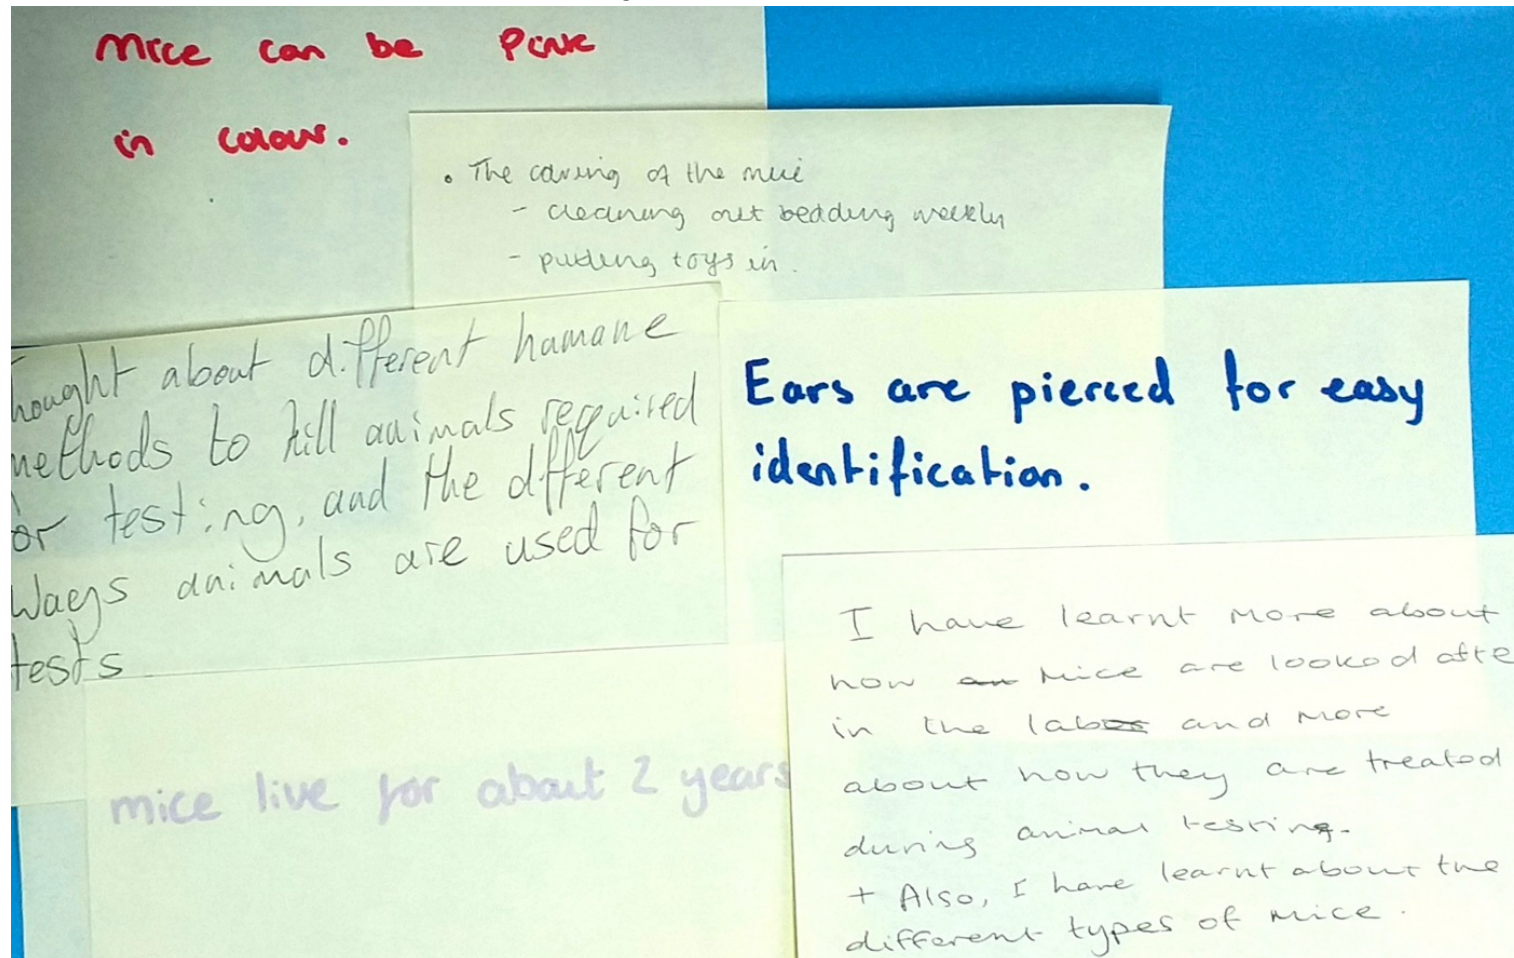 Mice can be Pink
in colour.
• The caring of the mice
- cleaning out bedding weekly
- putting toys in.
hought about different humane
methods to kill animals required
or testing, and the different
Ways animals are used for
tests
Ears are pierced for easy
identification.
mice live for about 2 years
I have learnt more about
how mice are looked afte
in the lab and more
about how they are treated
during animal testing.
+ Also, I have learnt about the
different types of mice.